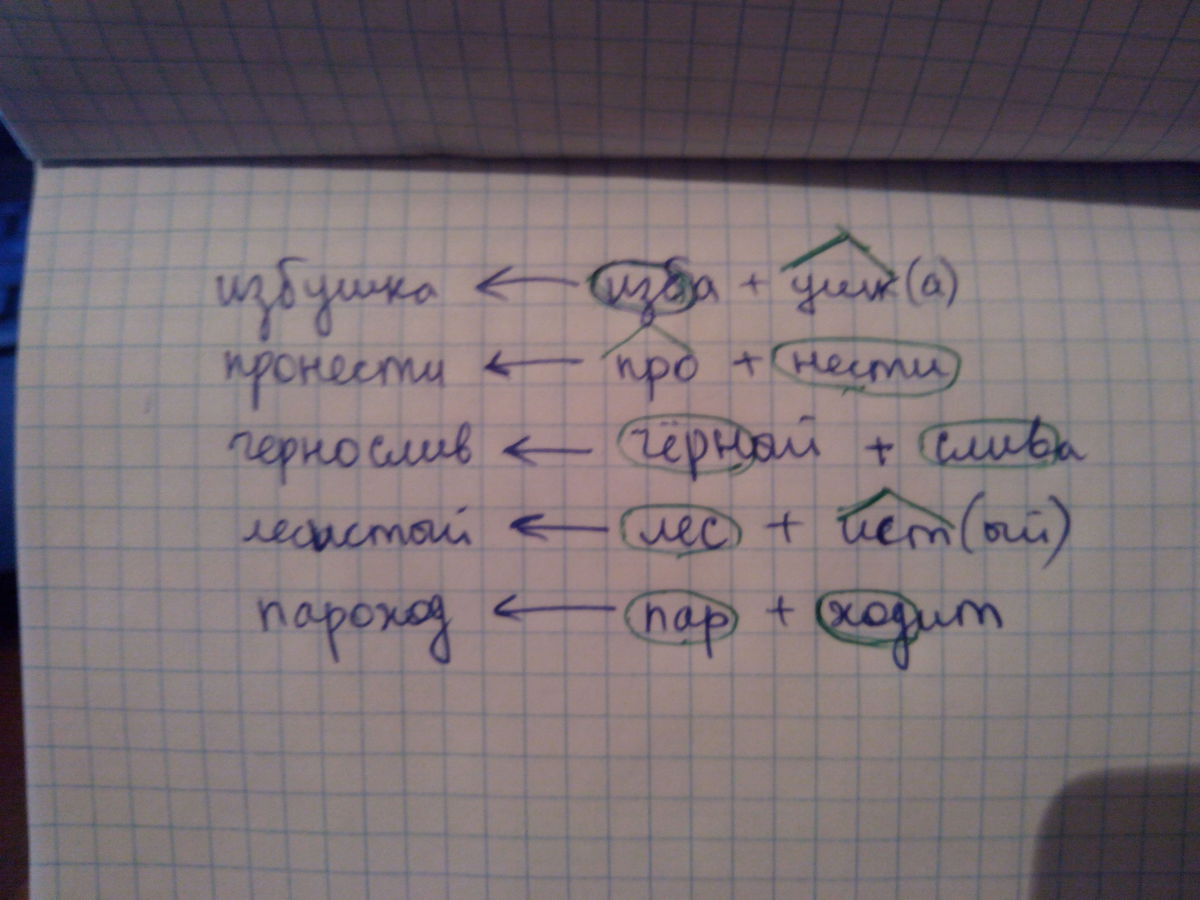 избушка ← изба + ушк(а)
пронести ← про + нести
чернослив ← чёрный + слива
лесистый ← лес + ист(ый)
пароход ← пар + ходит